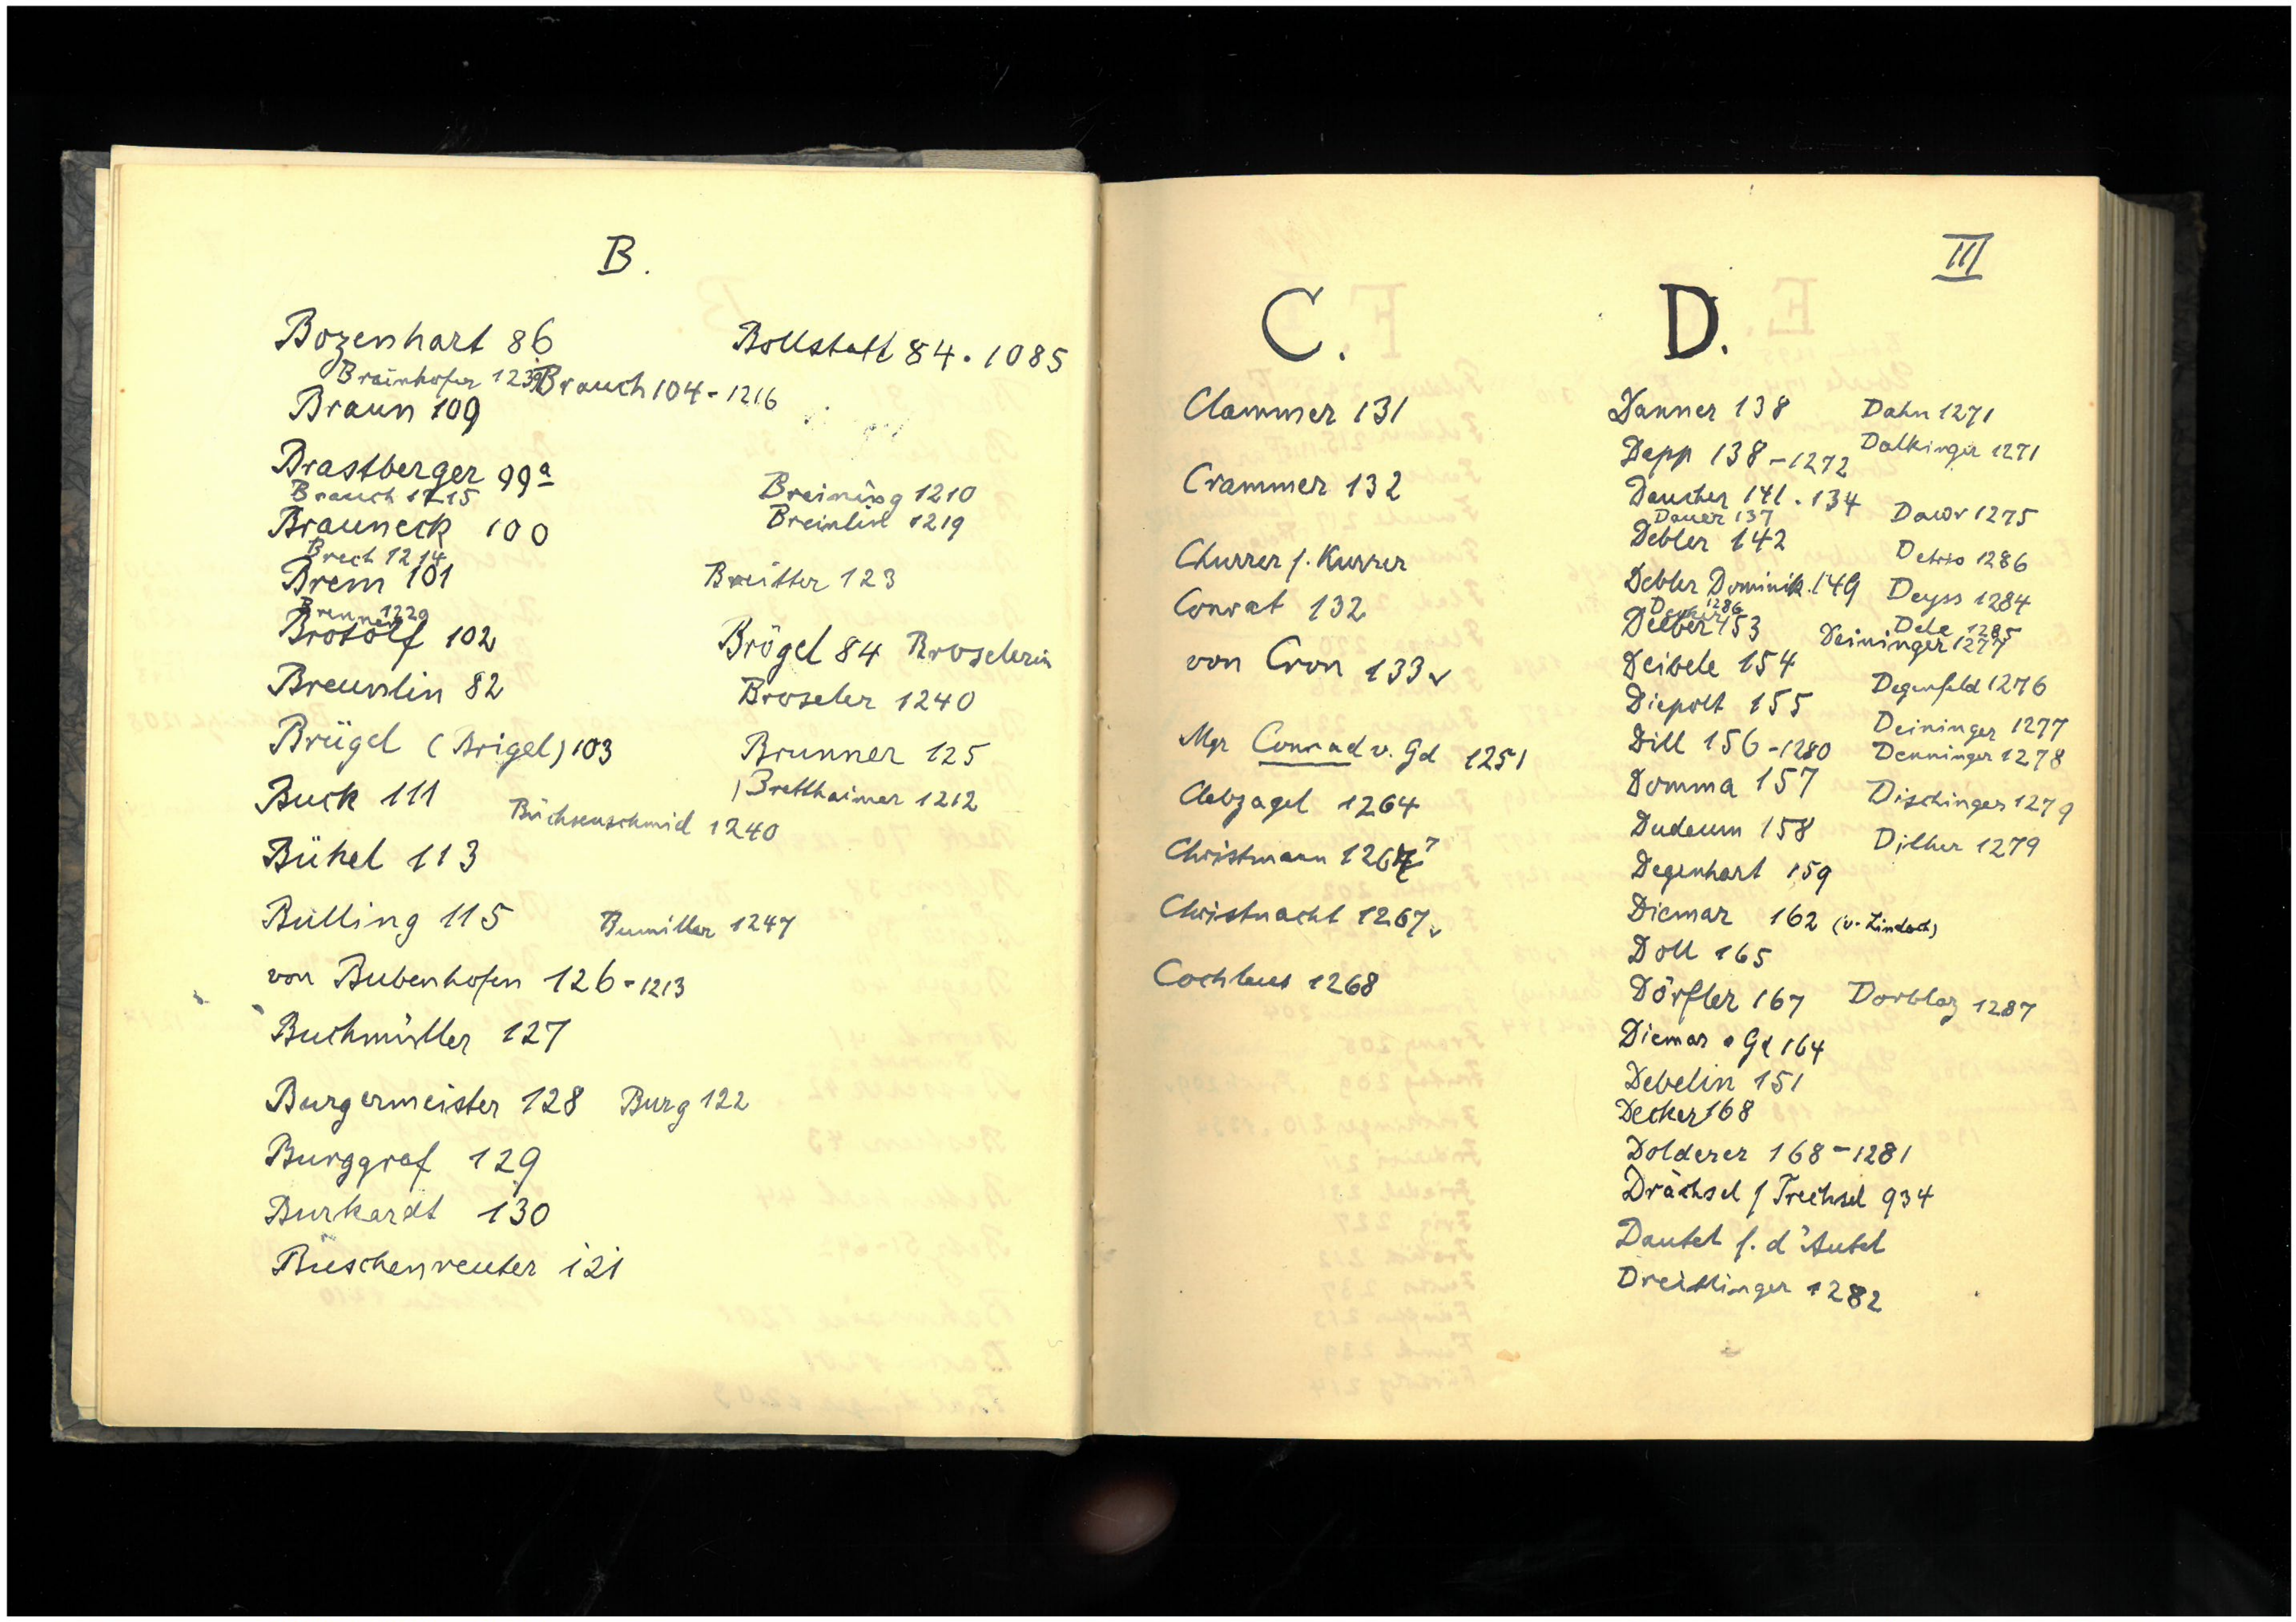 B.
Bozenhart 86
Bollstatt 84. 1085
Brainhofer 1239
Brauch 104-1216
Braun 109
Brastberger 99a
Brauch 1215
Breining 1210
Breinlin 1219
Brauneck 100
Brech 1214
Brem 101
Breitter 123
Brenner 1220
Brotolf 102
Brögel 84 Broselerin
Breunlin 82
Broseler 1240
Brügel (Brigel) 103
Brunner 125
Buck 111
Bretthaimer 1212
Büchsenschmid 1240
Bühel 113
Bulling 115
Bumiller 1247
von Bubenhofen 126-1213
Buchmüller 127
Burgermeister 128 Burg 122
Burggraf 129
Burkardt 130
Büschenreuter 121
III
C.
Clammer 131
Crammer 132
Churrer f. Kurrer
Conrat 132
von Cron 133
Mgr Conrad v. Gd 1251
Clebzagel 1264
Christmann 1267
Christnacht 1267
Cochleus 1268
D.
Danner 138
Dahn 1271
Dapp 138-1272
Dalkinger 1271
Daucher 141. 134
Dauer 137
Dawr 1275
Debler 142
Detrio 1286
Debler Dominik. 149
Deyss 1284
1286
153
Dele 1285
Deininger 1277
Deibele 154
Degenfeld 1276
Diepolt 155
Deininger 1277
Dill 156-1280
Denninger 1278
Domma 157
Dischinger 1279
Dudeum 158
Dilher 1279
Degenhart 159
Diemar 162 (v. Lindach)
Doll 165
Dörfler 167
Dorblaz 1287
Diemar Gd 164
Debelin 151
Decker 168
Dolderer 168-1281
Drächsel f Trechsel 934
Dautel f. d'Autel
Dreittinger 1282